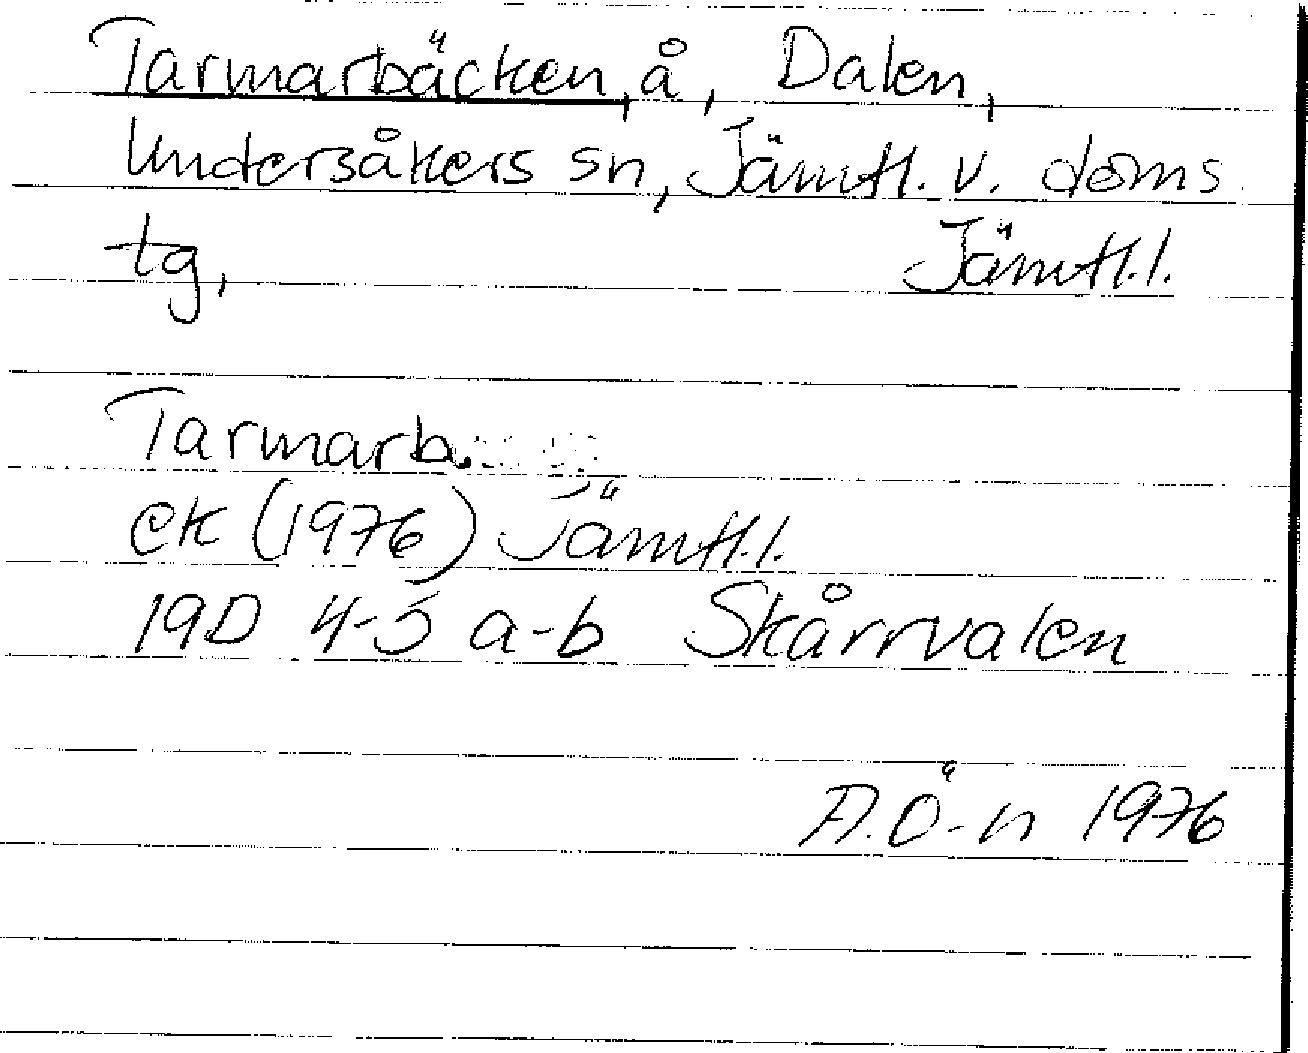 Tarmarbäcken, å, Dalen,
Undersåkers sn, Jämtl. v. doms
tg, Jämtl.l.
Tarmarb.
ek (1976) Jämtl.l.
19D 4-5 a-b Skårrvalen
A.Ö-n 1976